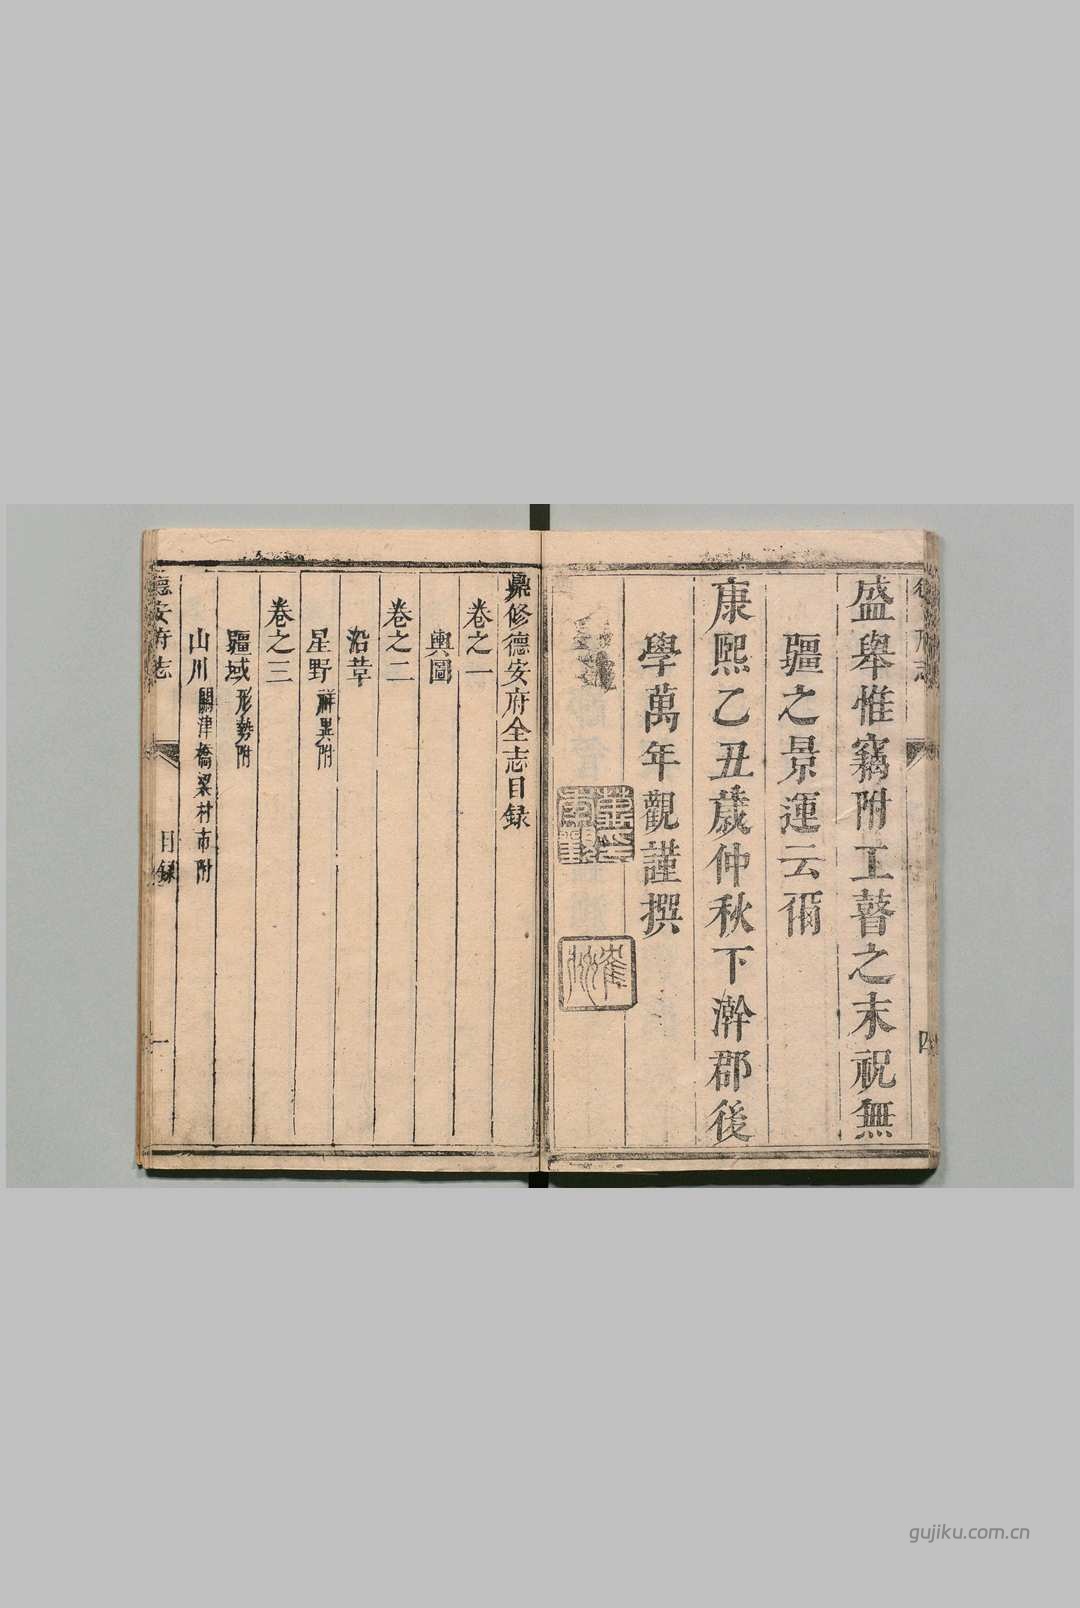 盛舉惟竊附工瞽之末祝無
疆之景運云爾
康熙乙丑歲仲秋下澣郡後
學萬年觀謹撰
鼎修德安府全志目録
卷之一
輿圖
卷之二
沿革
星野 祥異附
卷之三
疆域 形勢附
山川 關津橋梁村市附
德安府志
目録
一
gujiku.com.cn